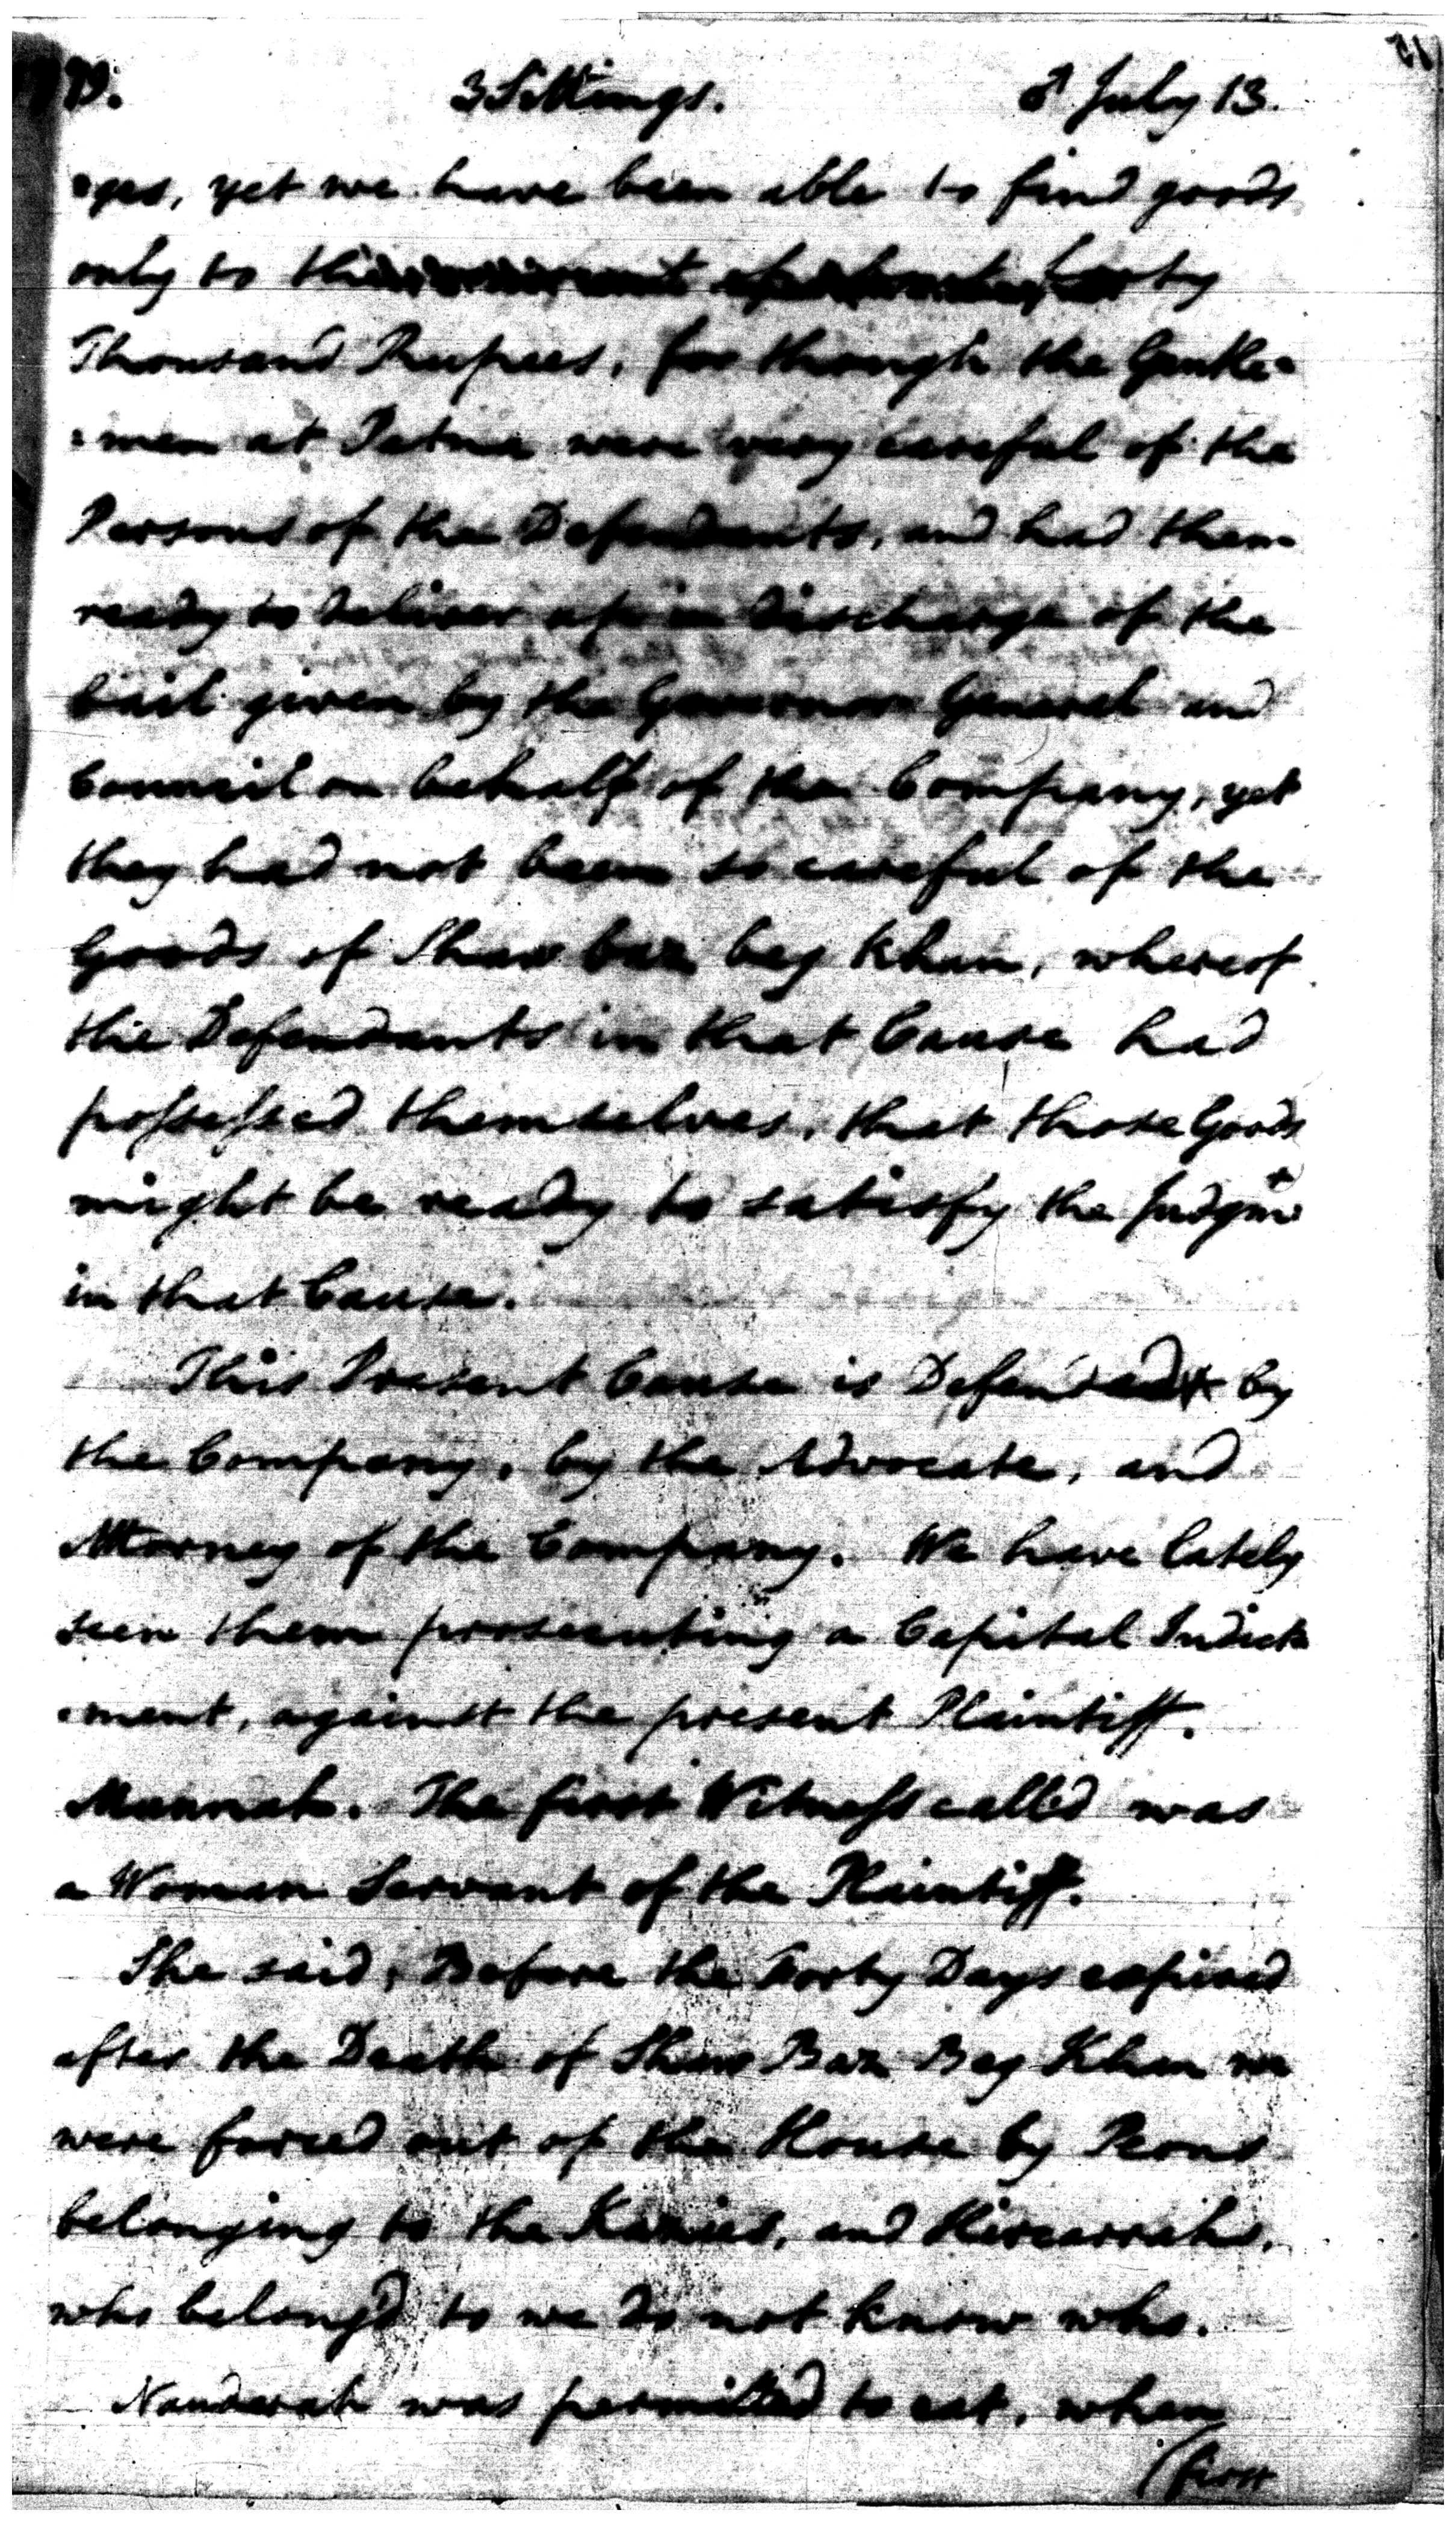 79. 3 Sittings. ♂ July 13.
=ges, yet we have been able to find goods
only to the
Thousand Rupees, for though the Gentle=
=men at Patna were very careful of the
Persons of the Defendants, and had them
ready to deliver up in discharge of the
bail given by the Governor General and
Council on behalf of the Company, yet
they had not been so careful of the
Goods of Shaw baz beg Khan, whereof
the Defendants in that Cause had
possessed themselves, that those Goods
might be ready to satisfy the Judgmt
in that Cause.
This Present Cause is Defended by
the Company, by the Advocate, and
Attorney of the Company. We have lately
seen them prosecuting a Capital Indict=
=ment, against the present Plaintiff.
Munnah. The first Witness called was
a Woman Servant of the Plaintiff.
She said, Before the Forty Days expired
after the Death of Shaw Baz Beg Khan we
were forced out of the House by Peons
belonging to the Kazies, and Hircarrahs,
who belong'd to we do not know who.
Nauderah was permitted to eat, when
(first